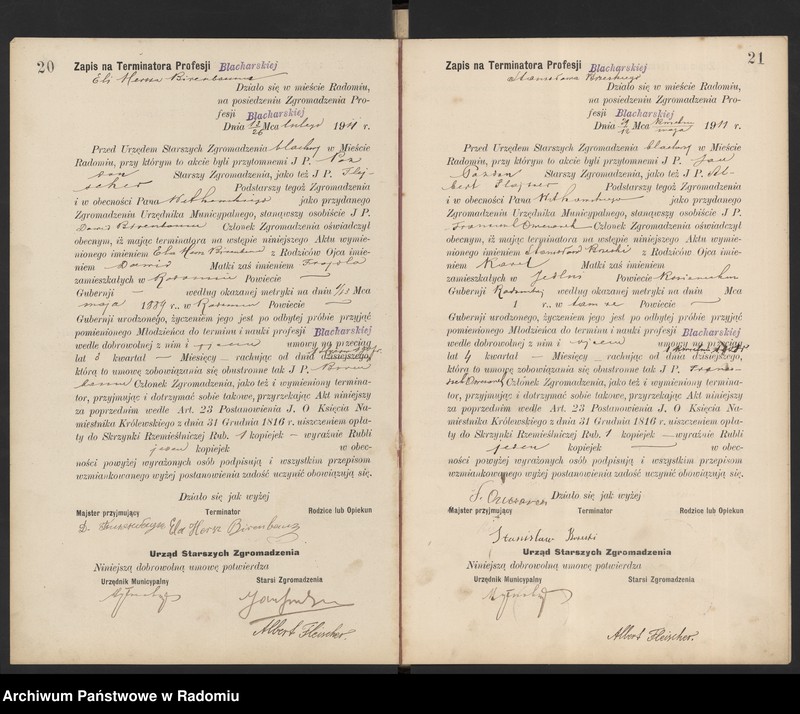 20
Zapis na Terminatora Profesji Blacharskiej
Działo się w mieście Radomiu,
na posiedzeniu Zgromadzenia Pro-
fesji Blacharskiej
Dnia 13/26 Mca lutego 1911 r.
Przed Urzędem Starszych Zgromadzenia blachary w Mieście
Radomiu, przy którym to akcie byli przytomnemi J P.
Starszy Zgromadzenia, jako też J P. Flaj-
scher Podstarszy tegoż Zgromadzenia
i w obecności Pana jako przydanego
Zgromadzeniu Urzędnika Municypalnego, stanąwszy osobiście J P.
Dawid Birenbaum Członek Zgromadzenia oświadczył
obecnym, iż mając terminatora na wstępie niniejszego Aktu wymie-
nionego imieniem z Rodziców Ojca imie-
niem Dawid Matki zaś imieniem
zamieszkałych w Radomiu Powiecie —
Gubernji — według okazanej metryki na dniu Mca
maja 1889 r.. w Radomiu Powiecie —
Gubernji urodzonego, życzeniem jego jest po odbytej próbie przyjąć
pomienionego Młodzieńca do terminu i nauki profesji Blacharskiej
wedle dobrowolnej z nim i ojcem umowy na przeciąg
lat 3 kwartał — Miesięcy — rachując od dnia dzisiejszego,
którą to umowę zobowiązania się obustronne tak J P. Biren
baum Członek Zgromadzenia, jako też i wymieniony termina-
tor, przyjmując i dotrzymać sobie takowe, przyrzekając Akt niniejszy
za poprzednim wedle Art. 23 Postanowienia J. O Księcia Na-
miestnika Królewskiego z dnia 31 Grudnia 1816 r. uiszczeniem opła-
ty do Skrzynki Rzemieślniczej Rub. 1 kopiejek — wyraźnie Rubli
jeden kopiejek w obec-
ności powyżej wyrażonych osób podpisują i wszystkim przepisom
wzmiankowanego wyżej postanowienia zadość uczynić obowiązują się.
Działo się jak wyżej
Majster przyjmujący Terminator Rodzice lub Opiekun
Ela Hersz Birenbaum
Urząd Starszych Zgromadzenia
Niniejszą dobrowolną umowę potwierdza
Urzędnik Municypalny Starsi Zgromadzenia
Albert Fleischer.
21
Zapis na Terminatora Profesji Blacharskiej
Stanisława Brzeskiego
Działo się w mieście Radomiu,
na posiedzeniu Zgromadzenia Pro-
fesji Blacharskiej
Dnia Mca kwietnia maja 1911 r.
Przed Urzędem Starszych Zgromadzenia blachary w Mieście
Radomiu, przy którym to akcie byli przytomnemi J P. Jan
Starszy Zgromadzenia, jako też J P. Al-
bert Podstarszy tegoż Zgromadzenia
i w obecności Pana jako przydanego
Zgromadzeniu Urzędnika Municypalnego, stanąwszy osobiście J P.
Członek Zgromadzenia oświadczył
obecnym, iż mając terminatora na wstępie niniejszego Aktu wymie-
nionego imieniem Stanisław Brzeski z Rodziców Ojca imie-
niem Karol Matki zaś imieniem —
zamieszkałych w Jedlni Powiecie Kozienickim
Gubernji Radomskiej według okazanej metryki na dniu Mca
1 r.. w tamże Powiecie —
Gubernji urodzonego, życzeniem jego jest po odbytej próbie przyjąć
pomienionego Młodzieńca do terminu i nauki profesji Blacharskiej
wedle dobrowolnej z nim i ojcem umowy na przeciąg
lat 4 kwartał — Miesięcy — rachując od dnia dzisiejszego,
którą to umowę zobowiązania się obustronne tak J P.
Członek Zgromadzenia, jako też i wymieniony termina-
tor, przyjmując i dotrzymać sobie takowe, przyrzekając Akt niniejszy
za poprzednim wedle Art. 23 Postanowienia J. O Księcia Na-
miestnika Królewskiego z dnia 31 Grudnia 1816 r. uiszczeniem opła-
ty do Skrzynki Rzemieślniczej Rub. 1 kopiejek — wyraźnie Rubli
jeden kopiejek — w obec-
ności powyżej wyrażonych osób podpisują i wszystkim przepisom
wzmiankowanego wyżej postanowienia zadość uczynić obowiązują się.
Działo się jak wyżej
Majster przyjmujący Terminator Rodzice lub Opiekun
Stanisław Brzeski
Urząd Starszych Zgromadzenia
Niniejszą dobrowolną umowę potwierdza
Urzędnik Municypalny Starsi Zgromadzenia
Albert Fleischer.
Archiwum Państwowe w Radomiu